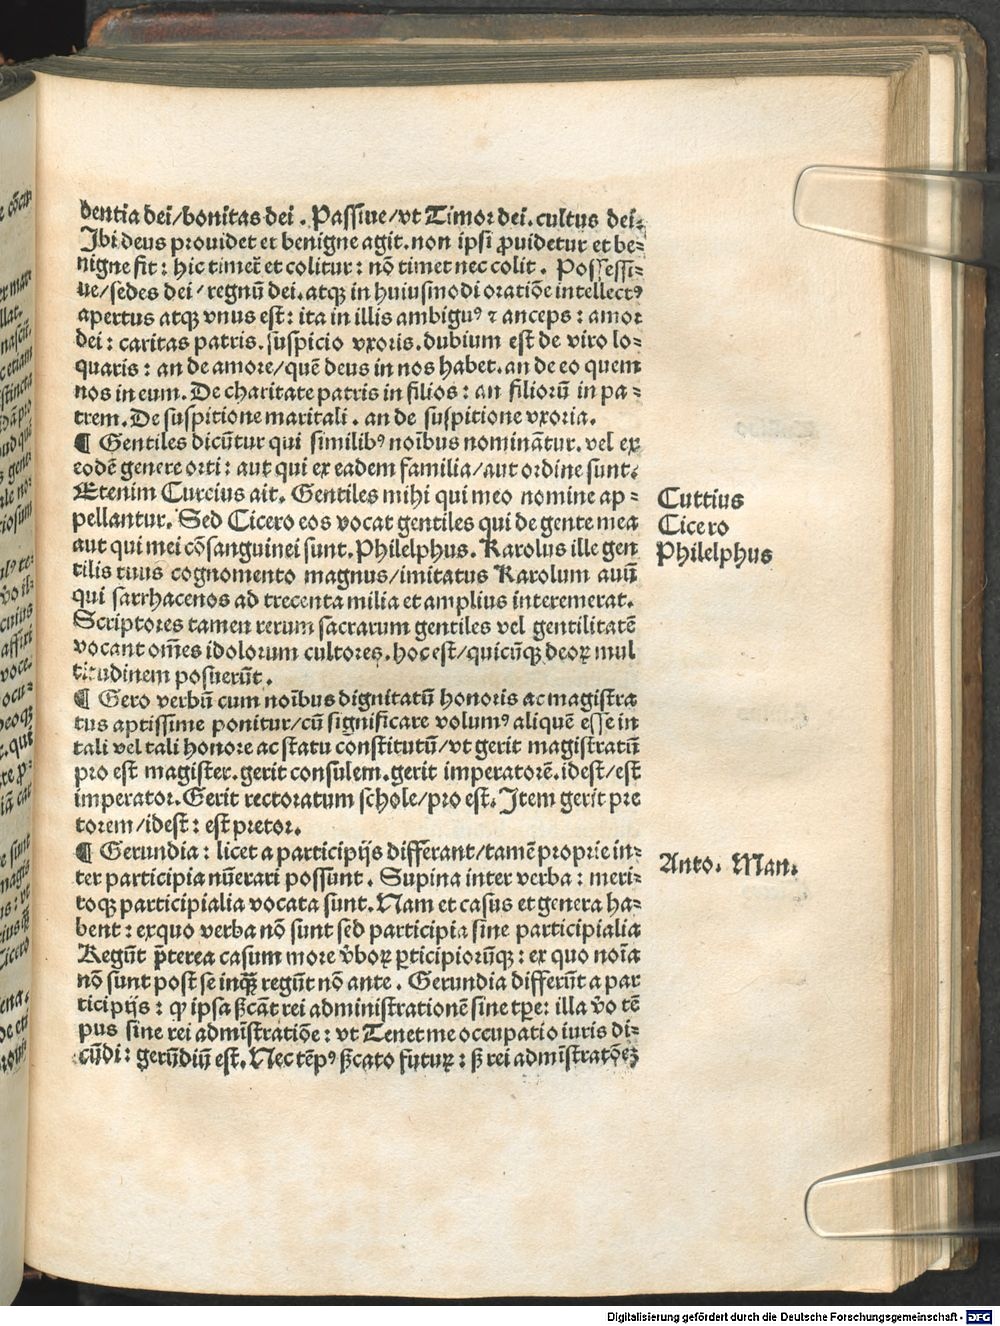 dentia dei/bonitas dei . Passiue/vt Timor dei. cultus dei⸗
Ibi deus prouidet et benigne agit. non ipsi ꝓuidetur et be⸗
nigne fit : hic timet̃ et colitur : nõ timet nec colit . Possessi⸗
ue/sedes dei / regnũ dei. atqꝫ in huiusmodi oratiõe intellectꝰ
apertus atqꝫ vnus est : ita in illis ambiguꝰ ⁊ anceps : amor
dei : caritas patris. suspicio vxoris. dubium est de viro lo⸗
quaris : an de amore/quẽ deus in nos habet. an de eo quem
nos in eum. De charitate patris in filios : an filiorũ in pa⸗
trem. De suspitione maritali . an de suspitione vxoria.
¶ Gentiles dicũtur qui similibꝰ noĩbus nominãtur. vel ex
eodẽ genere orti : aut qui ex eadem familia/aut ordine sunt.
Etenim Curcius ait. Gentiles mihi qui meo nomine ap⸗
pellantur. Sed Cicero eos vocat gentiles qui de gente mea
aut qui mei cõsanguinei sunt. Philelphus. Karolus ille gen
tilis tuus cognomento magnus/imitatus Karolum auũ
qui sarrhacenos ad trecenta milia et amplius interemerat.
Scriptores tamen rerum sacrarum gentiles vel gentilitatẽ
vocant om̃es idolorum cultores. hoc est/quicũqꝫ deoꝝ mul
titudinem posuerũt .
¶ Gero verbũ cum noĩbus dignitatũ honoris ac magistra
tus aptissime ponitur/cũ significare volumꝰ aliquẽ esse in
tali vel tali honore ac statu constitutũ/vt gerit magistratũ
pro est magister. gerit consulem. gerit imperatorẽ. idest/est
imperator. Gerit rectoratum schole/pro est. Item gerit pre
torem/idest : est pretor.
¶ Gerundia : licet a participijs differant/tamẽ proprie in⸗
ter participia nũerari possunt . Supina inter verba : meri⸗
toqꝫ participialia vocata sunt. Nam et casus et genera ha⸗
bent : exquo verba nõ sunt sed participia sine participialia
Regũt p̃terea casum more v̾boꝝ ꝑticipiorũqꝫ : ex quo noĩa
nõ sunt post se inqꝫ regũt nõ ante . Gerundia differũt a par
ticipijs : qꝙ ipsa ßcãt rei administrationẽ sine tꝑe : illa v̾o tẽ
pus sine rei admĩstratiõe : vt Tenet me occupatio iuris di⸗
cũdi : gerũdiũ est. Nec tẽpꝰ ßcato futuꝝ : ß rei admĩstratõeꝫ
Cuttius
Cicero
Philelphus
Anto. Man.
Digitalisierung gefördert durch die Deutsche Forschungsgemeinschaft - DFG